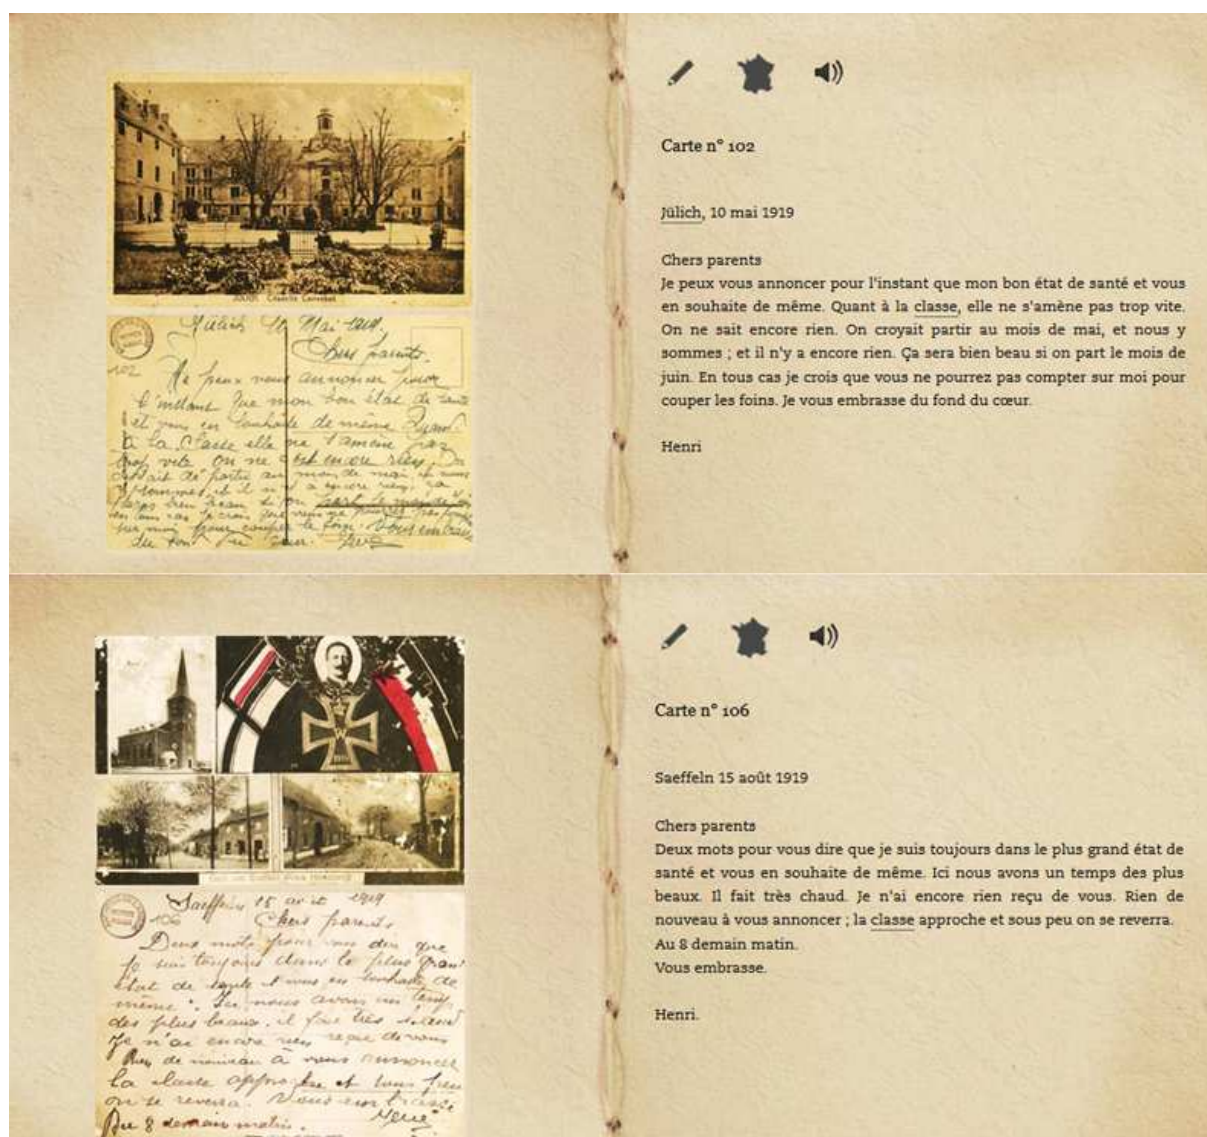 JÜLICH.
Jülich 10 Mai 1919.
Chers parents.
102
Je peux vous annoncer pour
l'instant que mon bon état de santé
et vous en souhaite de même Quant
à la Classe elle ne s'amène pas
trop vite On ne sait encore rien. On
croyait de partir au mois de mai, et nous
y sommes et il n'y a encore rien, ça
bien beau si on part le mois de
en tous cas je crois que vous ne pourrez pas
sur moi pour couper le foin. Vous embrasse
du fond du cœur.
Carte n° 102
Jülich, 10 mai 1919
Chers parents
Je peux vous annoncer pour l'instant que mon bon état de santé et vous
en souhaite de même. Quant à la classe, elle ne s'amène pas trop vite.
On ne sait encore rien. On croyait partir au mois de mai, et nous y
sommes ; et il n'y a encore rien. Ça sera bien beau si on part le mois de
juin. En tous cas je crois que vous ne pourrez pas compter sur moi pour
couper les foins. Je vous embrasse du fond du cœur.
Henri
W
Saeffeln 15 août 1919
106
Chers parents
Deux mots pour vous dire que
je suis toujours dans le plus grand
état de santé et vous en souhaite de
même. Ici nous avons un temps
des plus beaux. il fait très chaud
Je n'ai encore rien reçu de vous
Rien de nouveau à vous annoncer
la classe approche et sous peu
on se reverra. Vous embrasse
Au 8 demain matin.
Carte n° 106
Saeffeln 15 août 1919
Chers parents
Deux mots pour vous dire que je suis toujours dans le plus grand état de
santé et vous en souhaite de même. Ici nous avons un temps des plus
beaux. Il fait très chaud. Je n'ai encore rien reçu de vous. Rien de
nouveau à vous annoncer ; la classe approche et sous peu on se reverra.
Au 8 demain matin.
Vous embrasse.
Henri.